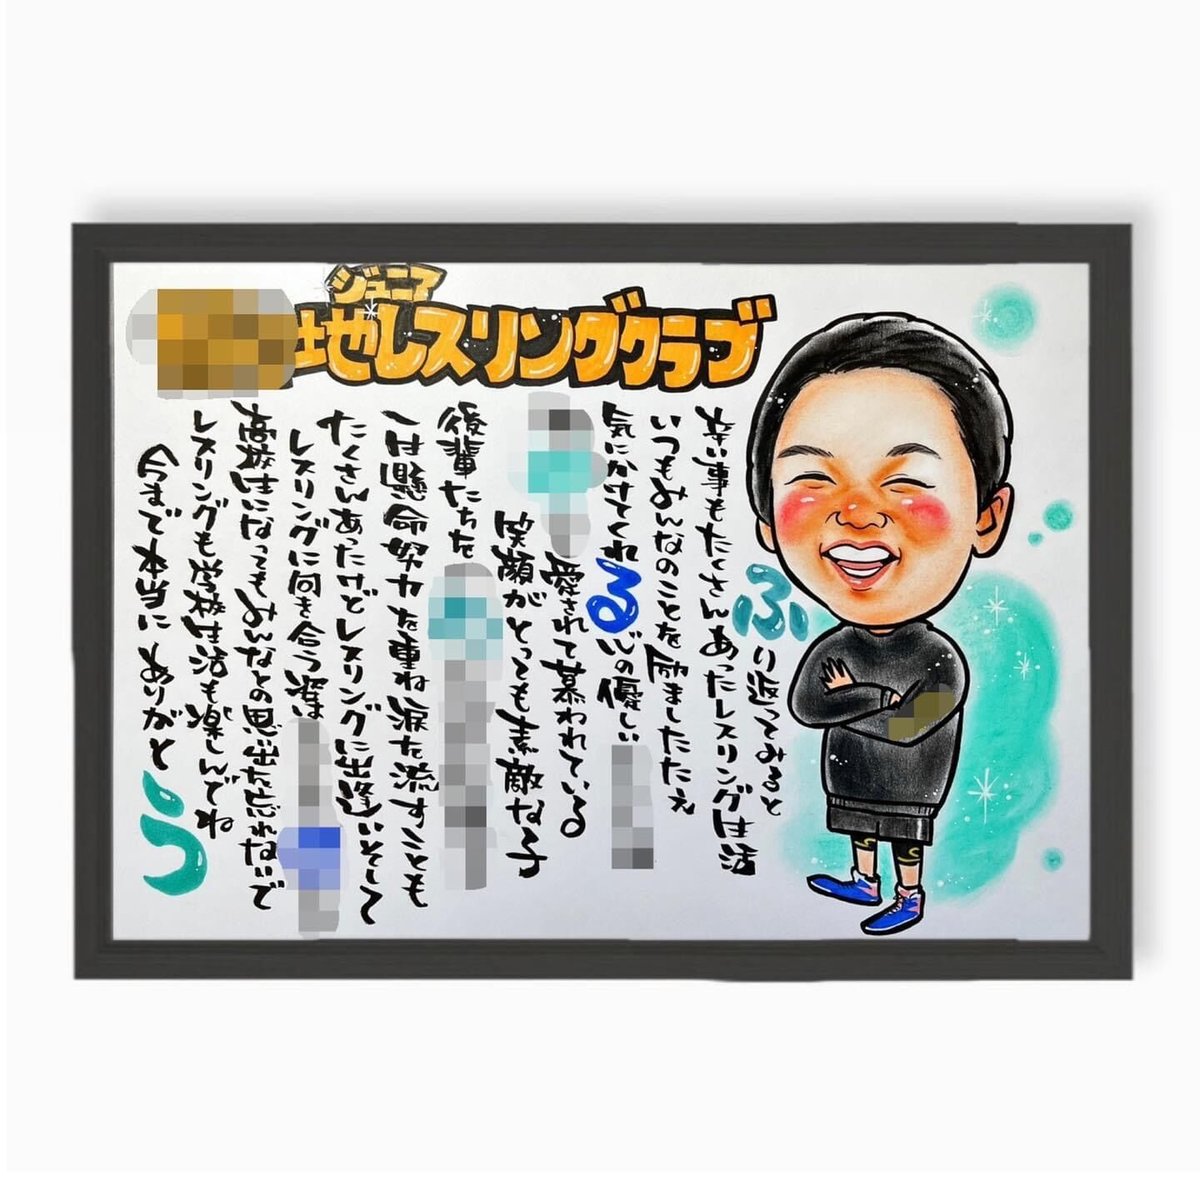 ジュニア
地レスリングクラブ
ふり返ってみると
辛い事もたくさんあったレスリング生活
いつもみんなのことを励ましたたえ
気にかけてくれる心の優しい
愛されて慕われている
笑顔がとっても素敵な子
後輩たちを
一生懸命努力を重ね涙を流すことも
たくさんあったけどレスリングに出逢いそして
レスリングに向き合う姿は
高校生になってもみんなとの思出を忘れないで
レスリングも学校生活も楽しんでね
今まで本当にありがとう